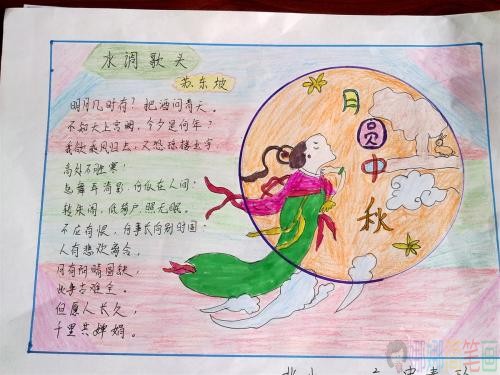 水调歌头
苏东坡
明月几时有？把酒问青天。
不知天上宫阙，今夕是何年？
我欲乘风归去，又恐琼楼玉宇，
高处不胜寒！
起舞弄清影，何似在人间！
转朱阁，低绮户，照无眠。
不应有恨，何事长向别时圆！
人有悲欢离合，
月有阴晴圆缺，
此事古难全。
但愿人长久，
千里共婵娟。
月
圆
中
秋